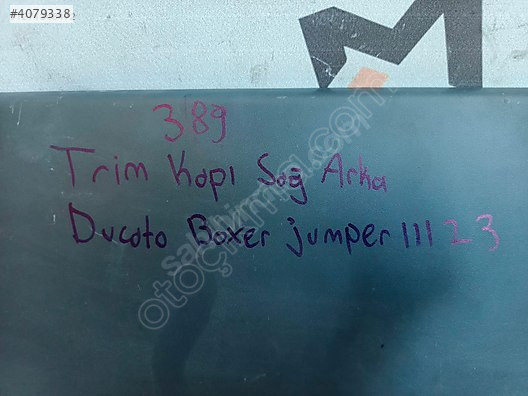 #4079338
389
Trim Kapı Sağ Arka
Ducato Boxer jumper III 23
sahibinden.com